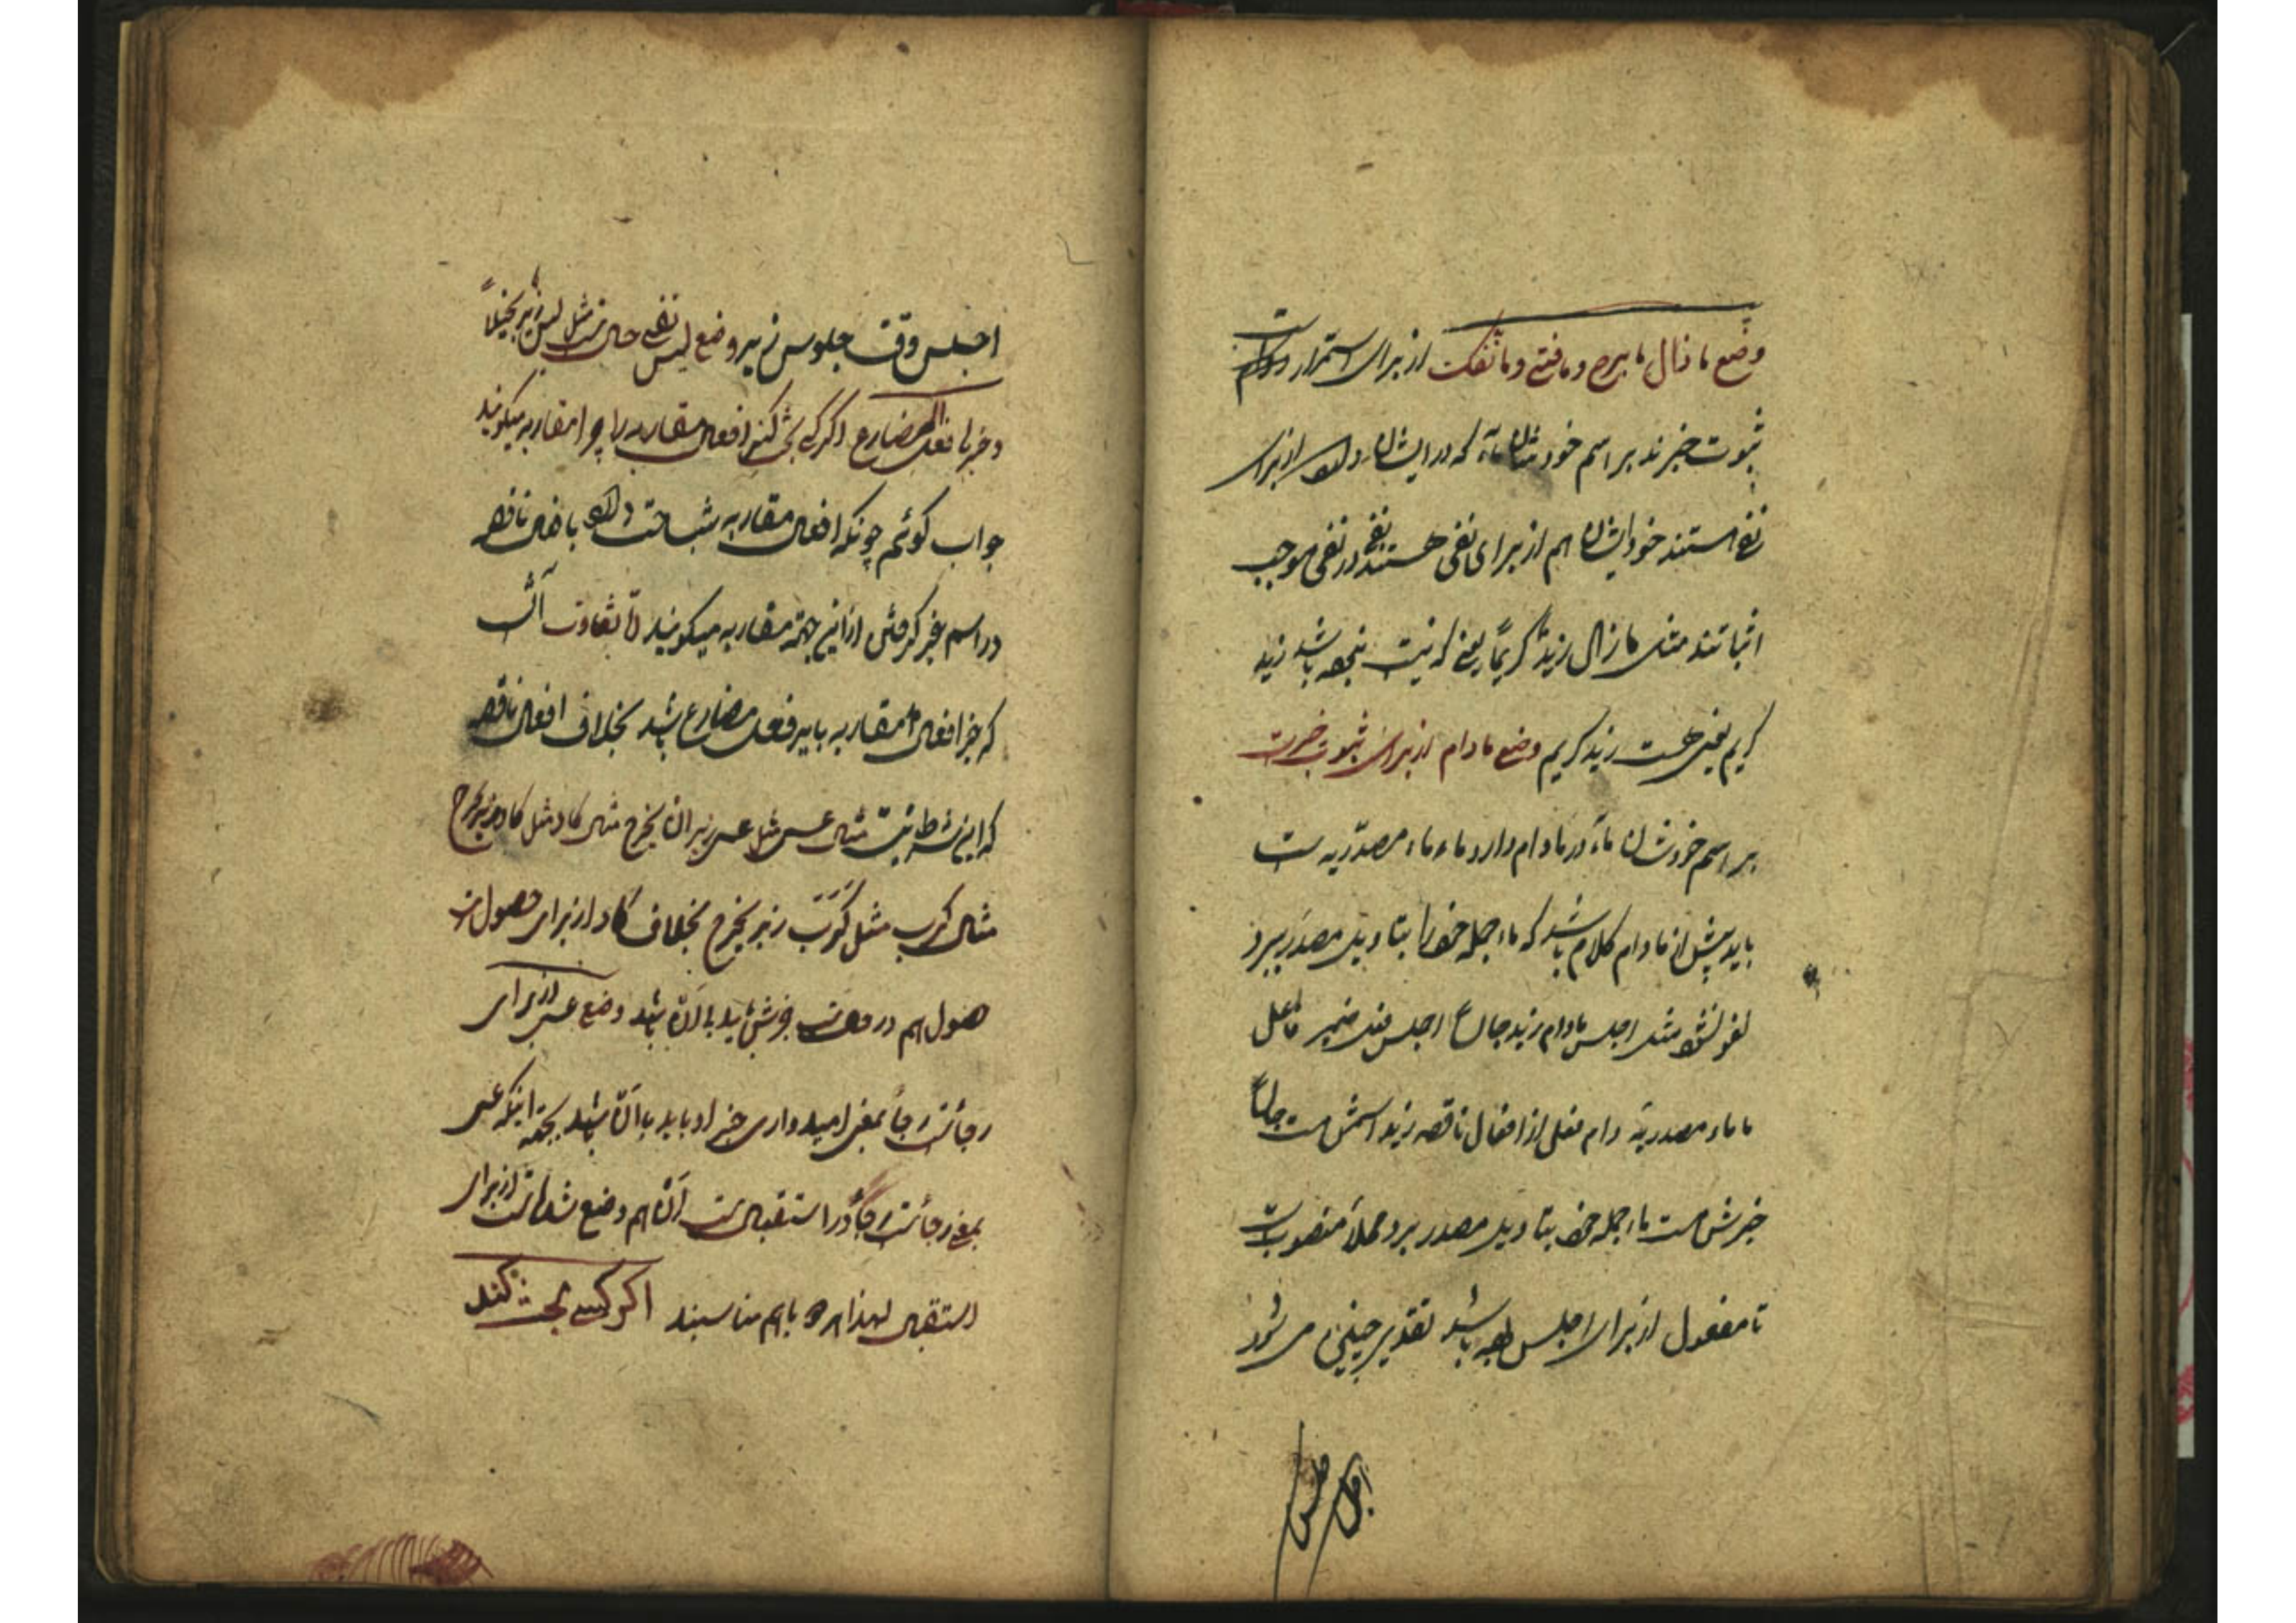 وضع ما ذال ما برح و ما فتئ و ما نفک از برای استمرار است
ثبوت خبرند بر اسم خودشان ماء که در ایشان از برای
نفی هستند خود ایشان هم از برای نفی هستند نفی در نفی موجب
اثباتند مثل ما زال زیدٌ کریماً یعنی که نیست نبوده باشد زید
کریم یعنی هست زید کریم وضع مادام از برای ثبوت خبرست
بر اسم خودشان ماء در مادام دارد ماء ماء مصدریه ست
باید پیش از مادام کلام باشد که ماء جمله خود را بتاویل مصدر ببرد
لغو نشود مثل اجلس مادام زید جالساً اجلس فعل ضمیر فاعل
ما ماء مصدریه دام فعل از افعال ناقصه زید اسمش ست جالساً
خبرش ست ماء جمله خود بتاویل مصدر برد محلاً منصوبست
تا مفعول از برای اجلس بوده باشد تقدیر چنین می شود
اجلس
اجلس وقت جلوس زید وضع لیس نفی حال ست مثل لیس زید بخیلاً
و خبر با فعل المضارع اگر کسی بحث کند افعال مقاربه را چرا مقاربه میکویند
جواب کوئم چونکه افعال مقاربه شباهت دارد با افعال ناقصه
در اسم خبر کرفتن از این جهة مقاربه میکویند تفاوت آنست
که خبر افعال مقاربه باید فعل مضارع باشد بخلاف افعال ناقصه
که این شرط نیست مثال عسی مثل عسی زید ان یخرج مثال کاد مثل کاد زید یخرج
مثال کرب مثل کَرَبَ زید یخرج بخلاف کاد از برای حصول ست
حصول هم در باید با اَنْ باشد وضع عسی از برای
رجائست رجا بمعنی امیدواری خبر او باید با اَنْ باشد بجهة اینکه عسی
بمعنی رجائست رجا در استقبال ست اَنْ هم وضع شده است از برای
استقبال لهذا هر دو باهم مناسبند اکر کسی بحث کند